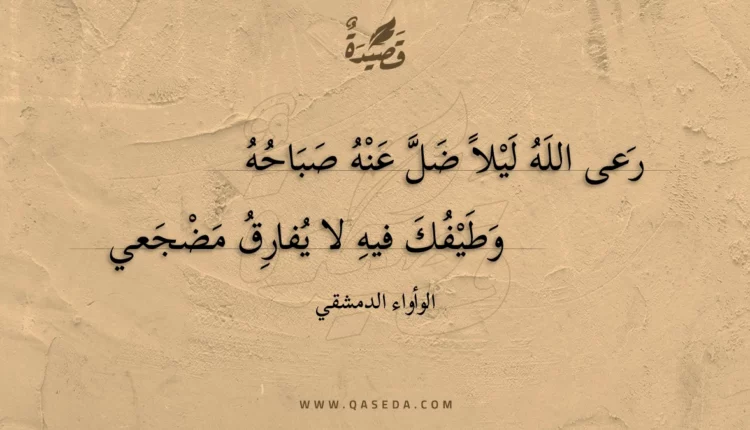 قَصِيدَةٌ
رَعى اللَهُ لَيْلاً ضَلَّ عَنْهُ صَبَاحُهُ
وَطَيْفُكَ فيهِ لا يُفارِقُ مَضْجَعي
الوأواء الدمشقي
WWW.QASEDA.COM